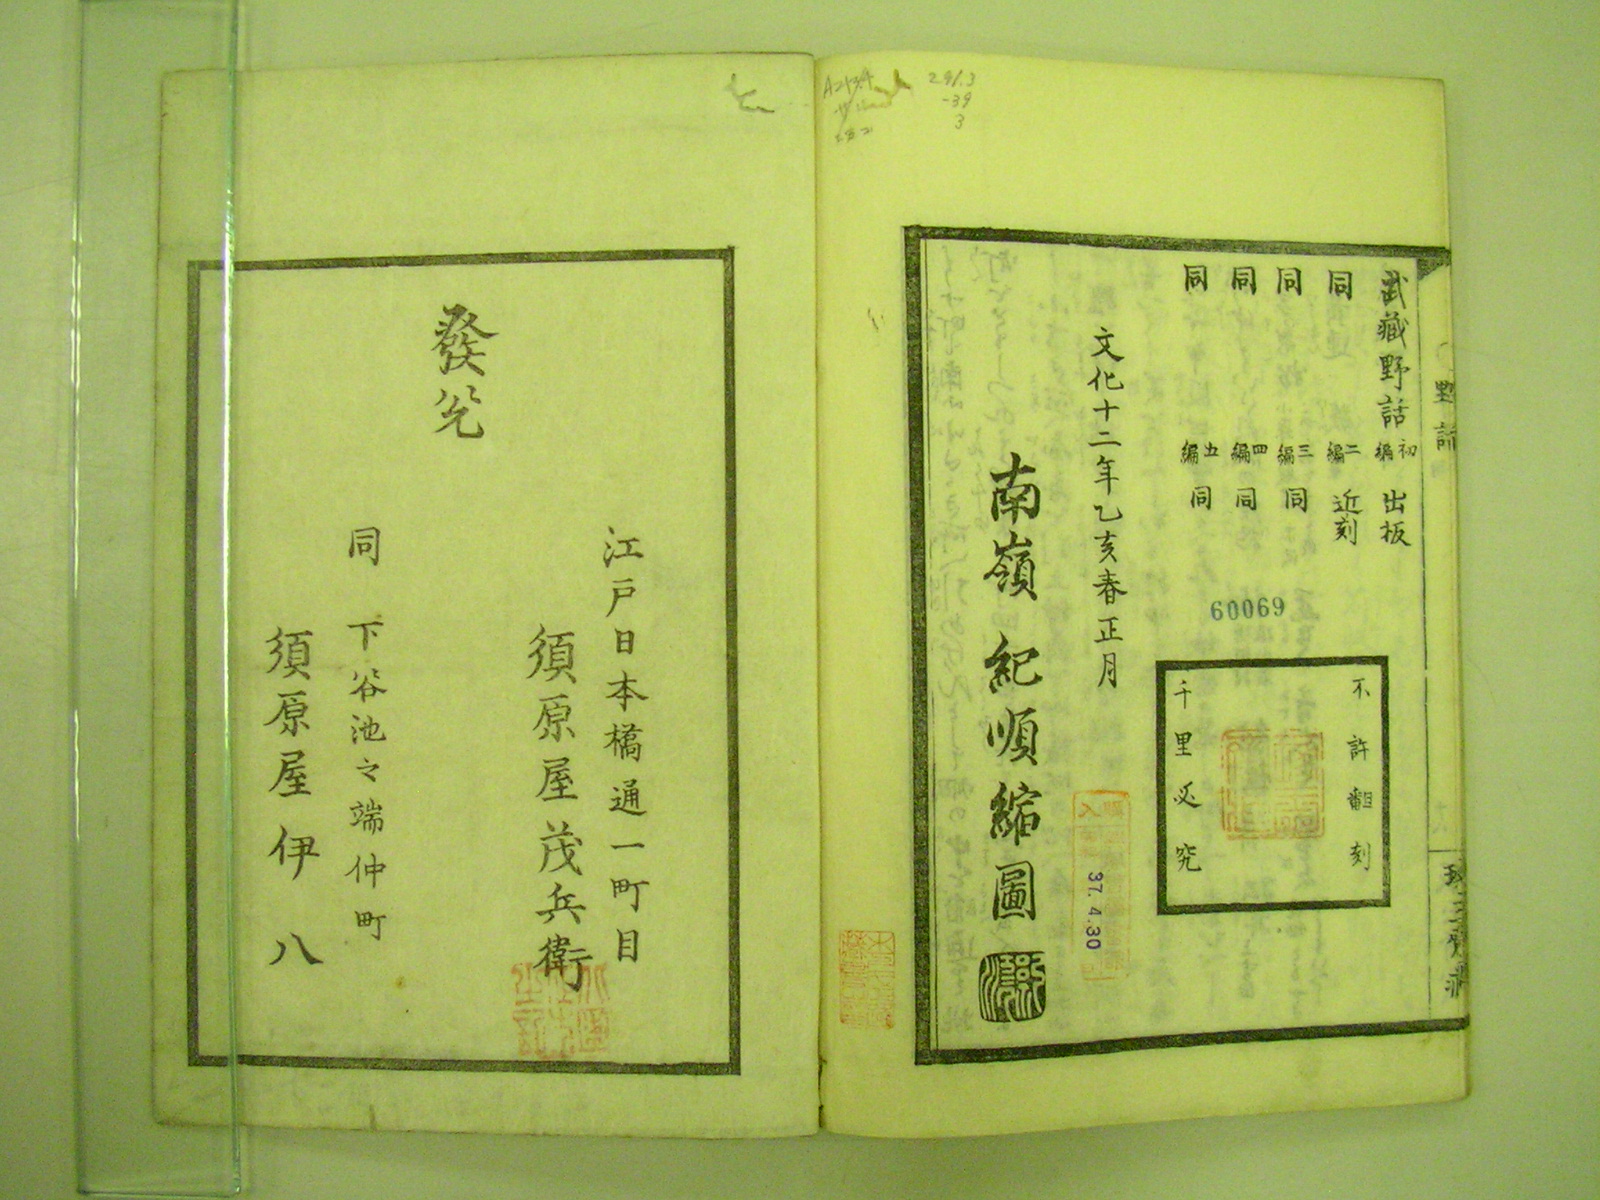 武藏野話 初編 出板
同 二編 近刻
同 三編 同
同 四編 同
同 五編 同
60069
不許翻刻
千里必究
文化十二年乙亥春正月
南嶺 紀順縮圖
37. 4. 30
291.3
-39
3
野話
發兌
江戸日本橋通一町目
須原屋茂兵衛
同 下谷池之端仲町
須原屋伊八